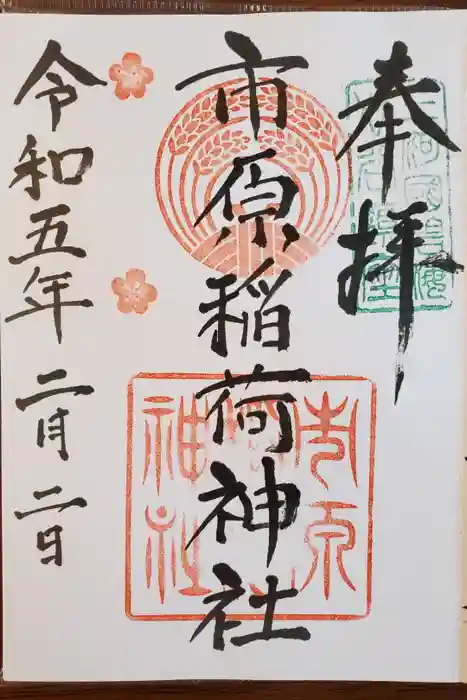 奉拝
市原稲荷神社
令和五年 二月 二日
市原
神社